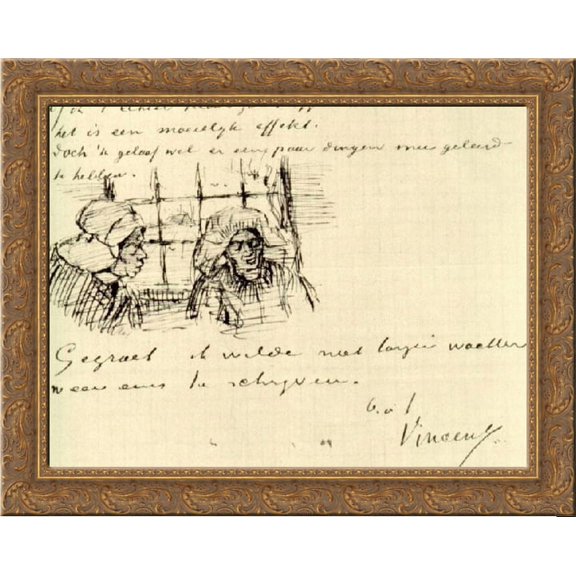 het is een moeielijk effekt.
Doch 'k geloof wel er een paar dingen mee geleerd
te hebben.
Gegroet ik wilde niet langer wachten
weer eens te schrijven.
b. à t.
Vincent